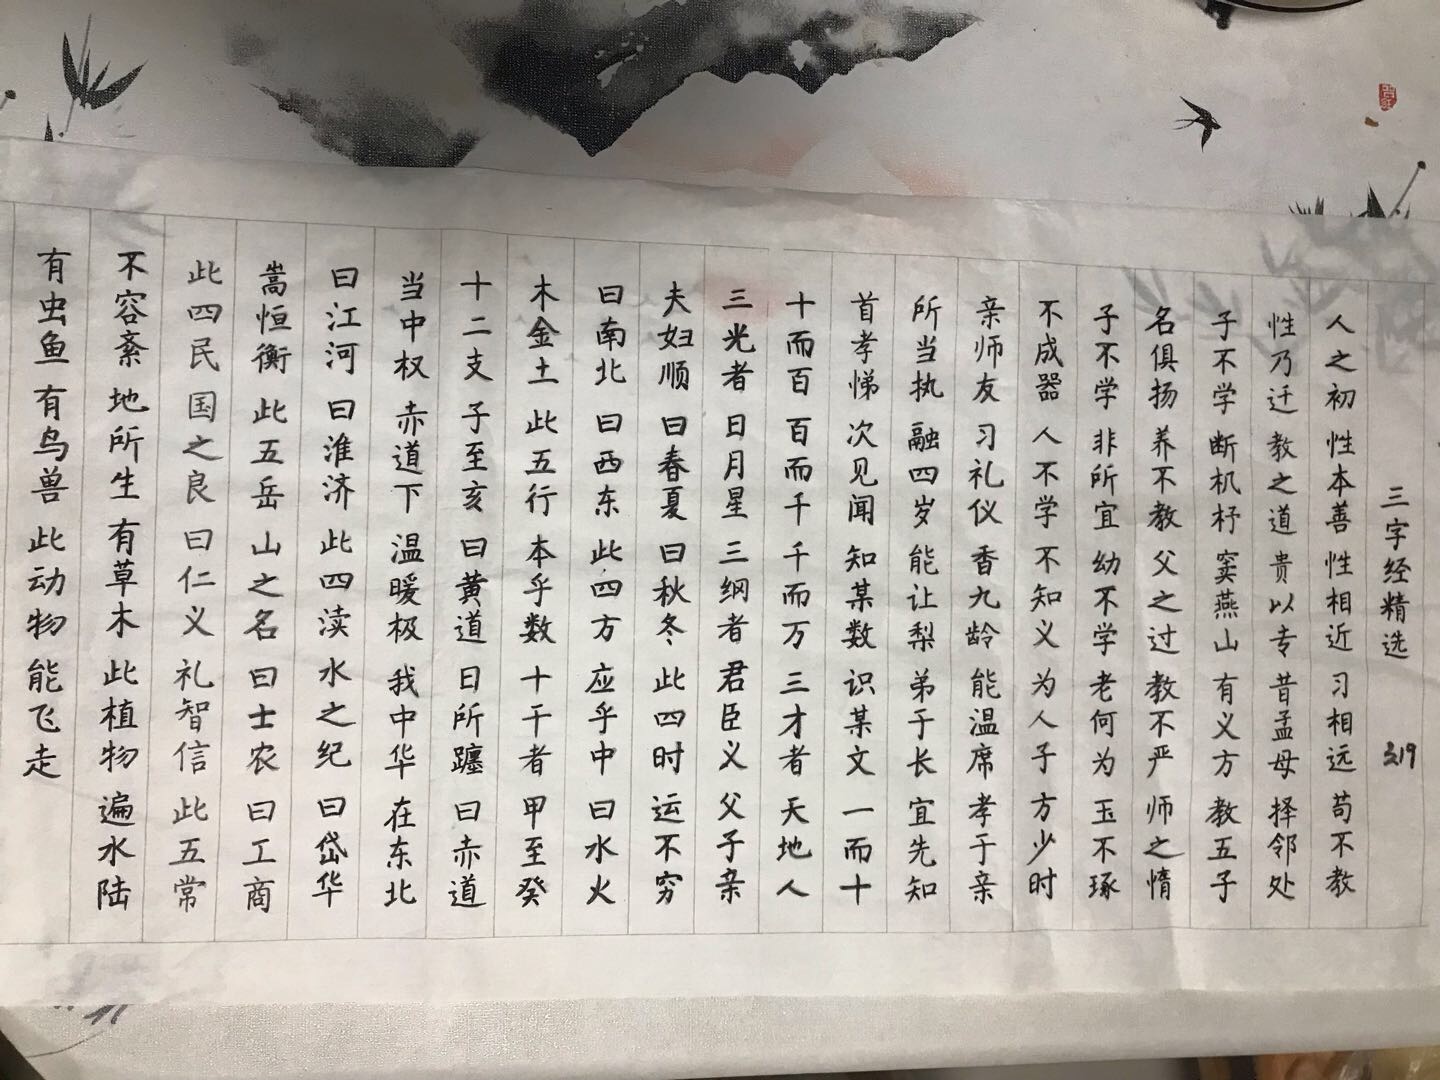 三字经精选 319
人之初 性本善 性相近 习相远 苟不教
性乃迁 教之道 贵以专 昔孟母 择邻处
子不学 断机杼 窦燕山 有义方 教五子
名俱扬 养不教 父之过 教不严 师之惰
子不学 非所宜 幼不学 老何为 玉不琢
不成器 人不学 不知义 为人子 方少时
亲师友 习礼仪 香九龄 能温席 孝于亲
所当执 融四岁 能让梨 弟于长 宜先知
首孝悌 次见闻 知某数 识某文 一而十
十而百 百而千 千而万 三才者 天地人
三光者 日月星 三纲者 君臣义 父子亲
夫妇顺 曰春夏 曰秋冬 此四时 运不穷
曰南北 曰西东 此四方 应乎中 曰水火
木金土 此五行 本乎数 十干者 甲至癸
十二支 子至亥 曰黄道 日所躔 曰赤道
当中权 赤道下 温暖极 我中华 在东北
曰江河 曰淮济 此四渎 水之纪 曰岱华
嵩恒衡 此五岳 山之名 曰士农 曰工商
此四民 国之良 曰仁义 礼智信 此五常
不容紊 地所生 有草木 此植物 遍水陆
有虫鱼 有鸟兽 此动物 能飞走